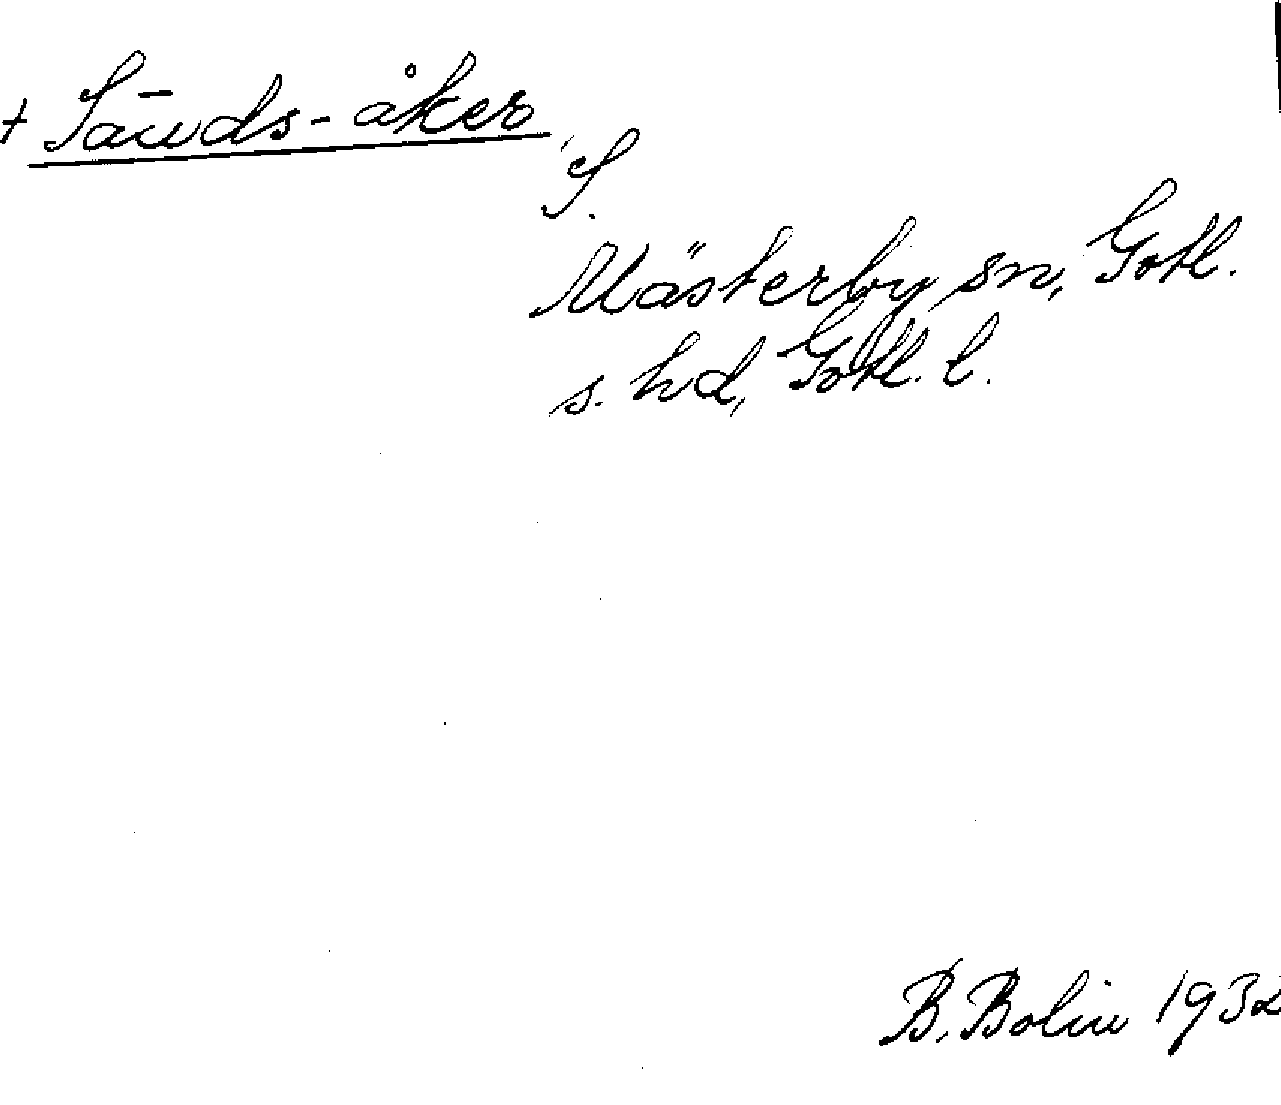 + Sāuds-åker,
S.
Mästerby sn, Gotl.
s. hd, Gotl. l.
B. Bolin 1932